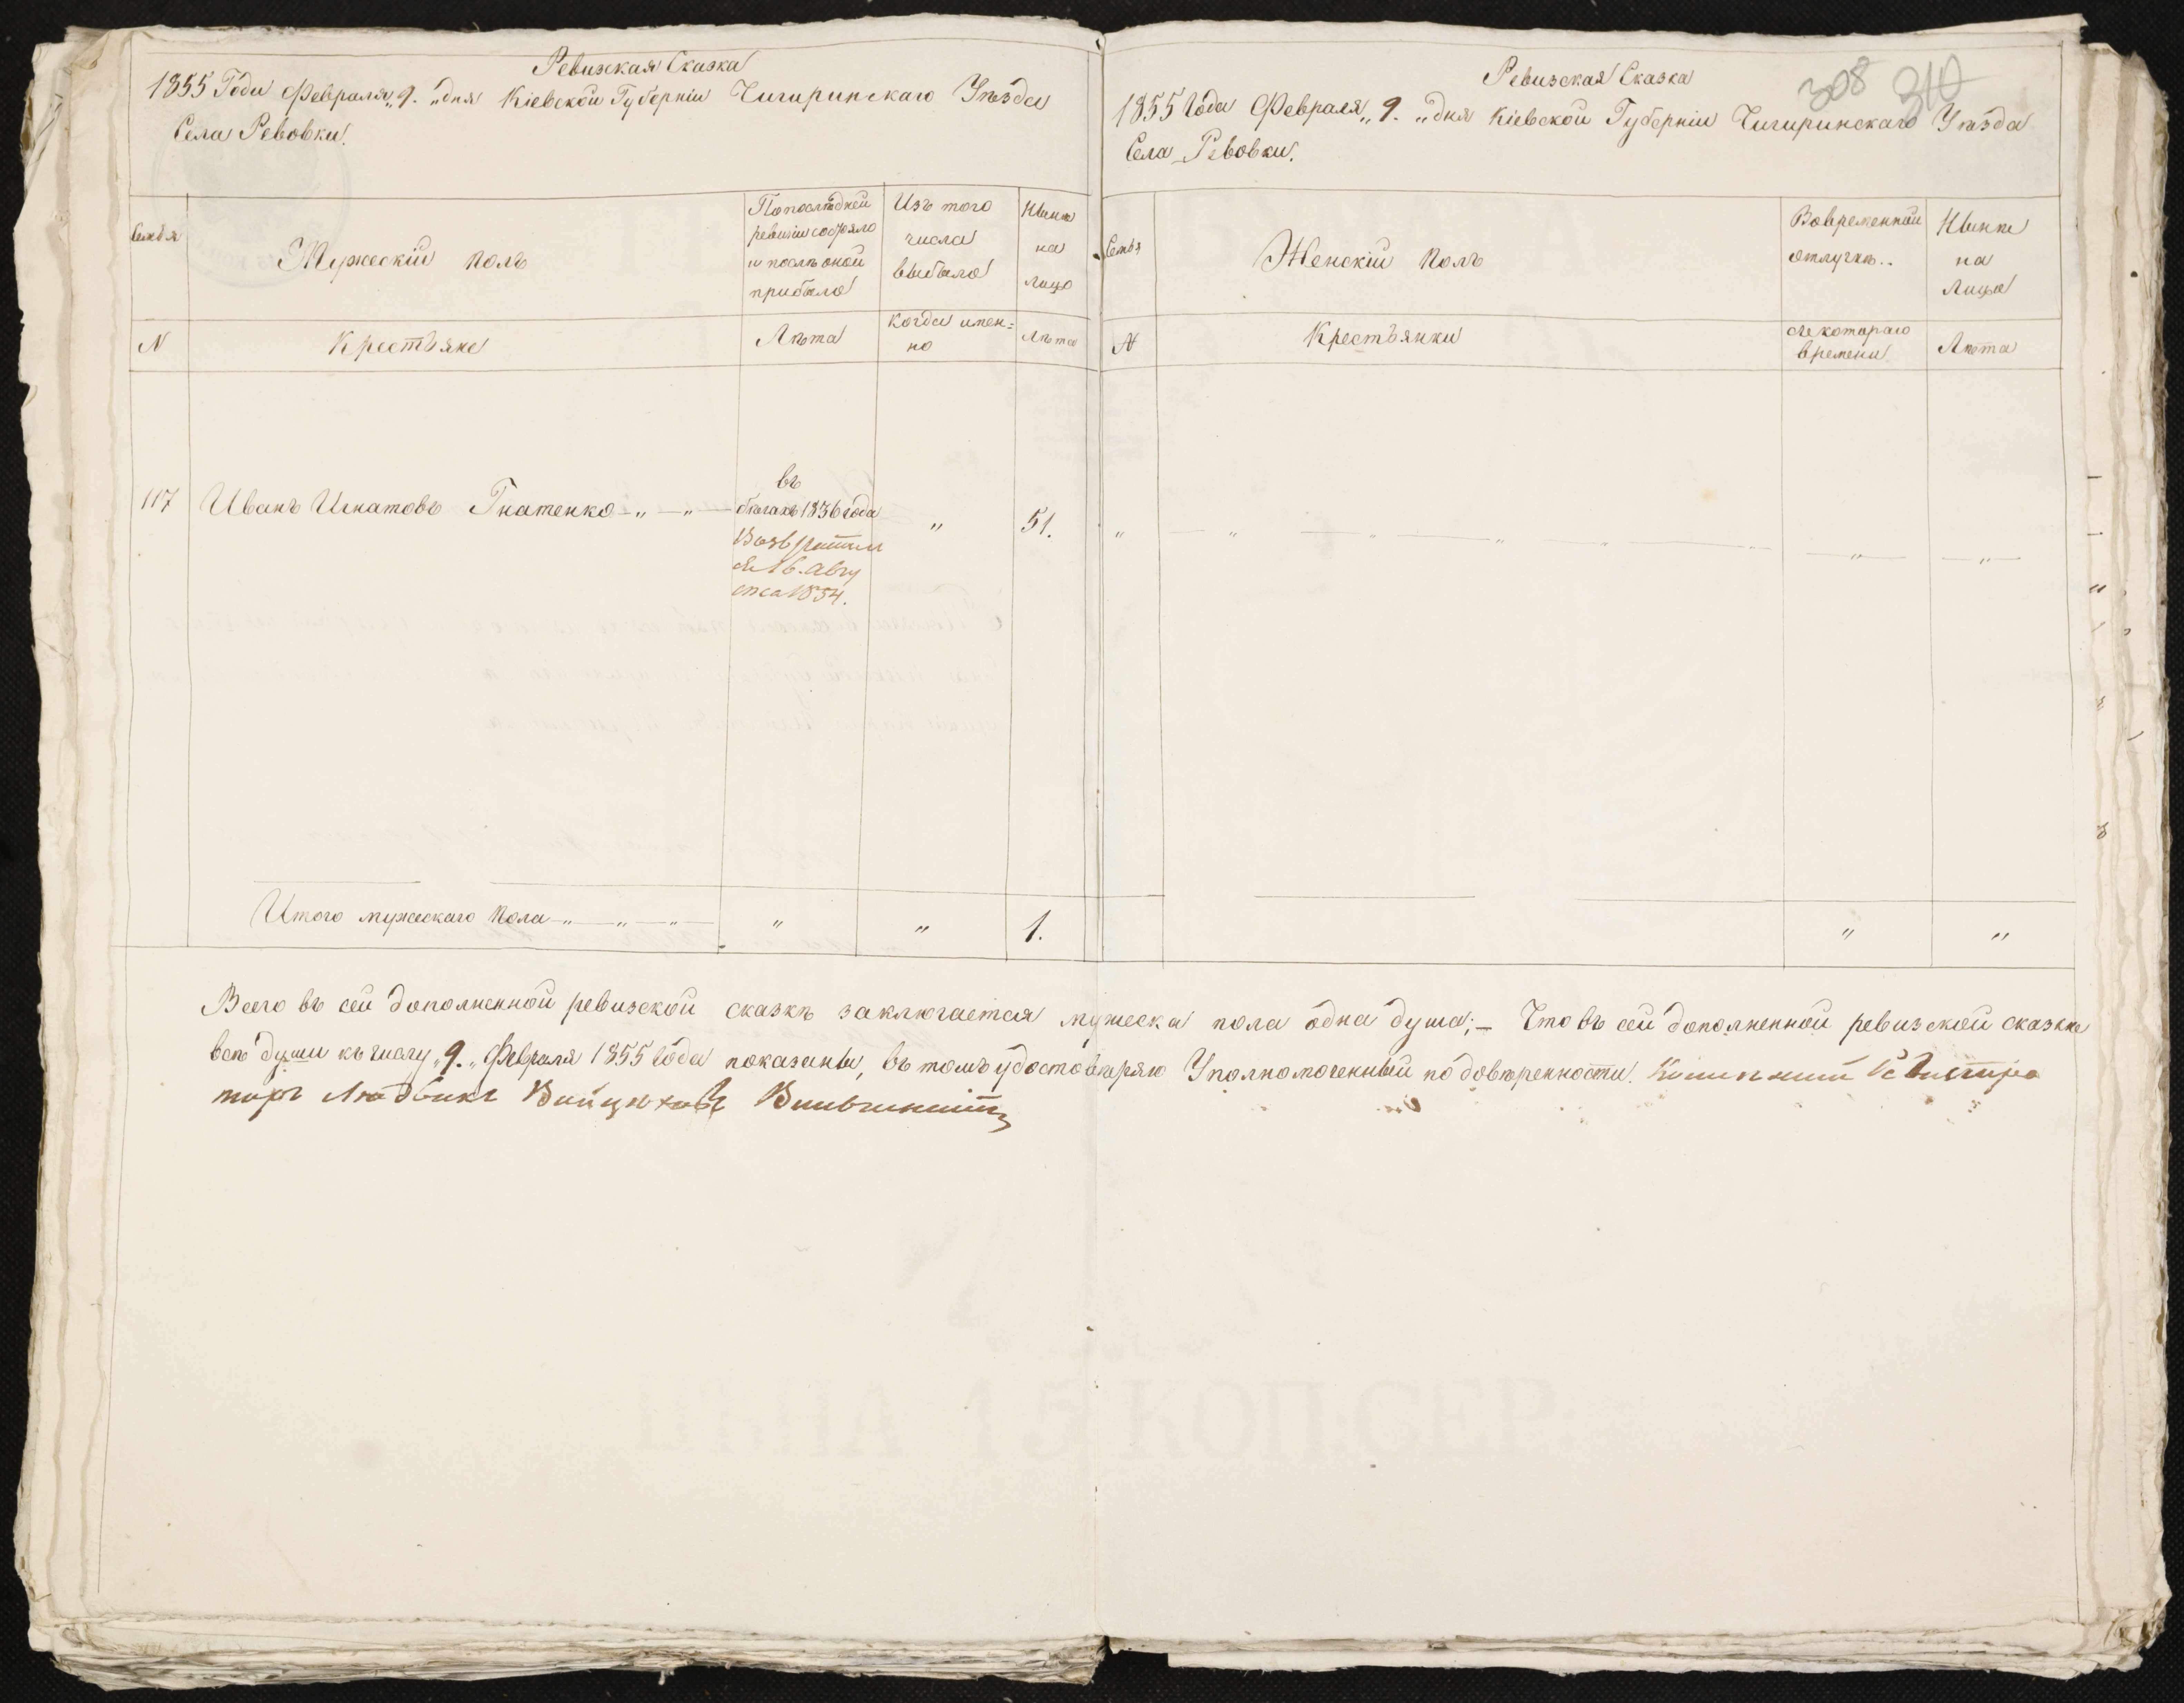 Ревизская Сказка
1855 Года Февраля „9.„ дня Кіевской Губерніи Чигиринскаго Уѣзда
Села Ревовки.
Семья
Мужескій полъ
По послѣдней
ревизіи состояло
и послѣ оной
прибыло
Изъ того
числа
выбыло
Нынѣ
на
лицо
N
Крестьяне
Лѣта
Когда имен=
но
Лѣта
117 Иванъ Игнатовъ Гнатенко — „ — „ —
въ
бѣгахъ 1836 года
Возврати
ся 16. Авгу
ста 1854.
„
51.
Итого мужескаго пола — „ — „ — „ — „ „ 1.
Ревизская Сказка
308 310
1855 Года Февраля „9.„ дня Кіевской Губерніи Чигиринскаго Уѣзда
Села Ревовки.
Семья
Женскій полъ
Во временной
отлучкѣ..
Нынѣ
на
Лицо
N
Крестьянки
Съ котораго
времени
Лѣта
„ — „ — „ — „ — „ — „ — „ —
„ „
Всего въ сей дополненной ревизской сказкѣ заключается мужеска пола одна душа; — Что въ сей дополненной ревизской сказкѣ
всѣ души къ числу „9.„ Февраля 1855 Года показаны, въ томъ удостовѣряю Уполномоченный по довѣренности. Регистра
торъ Людвикъ